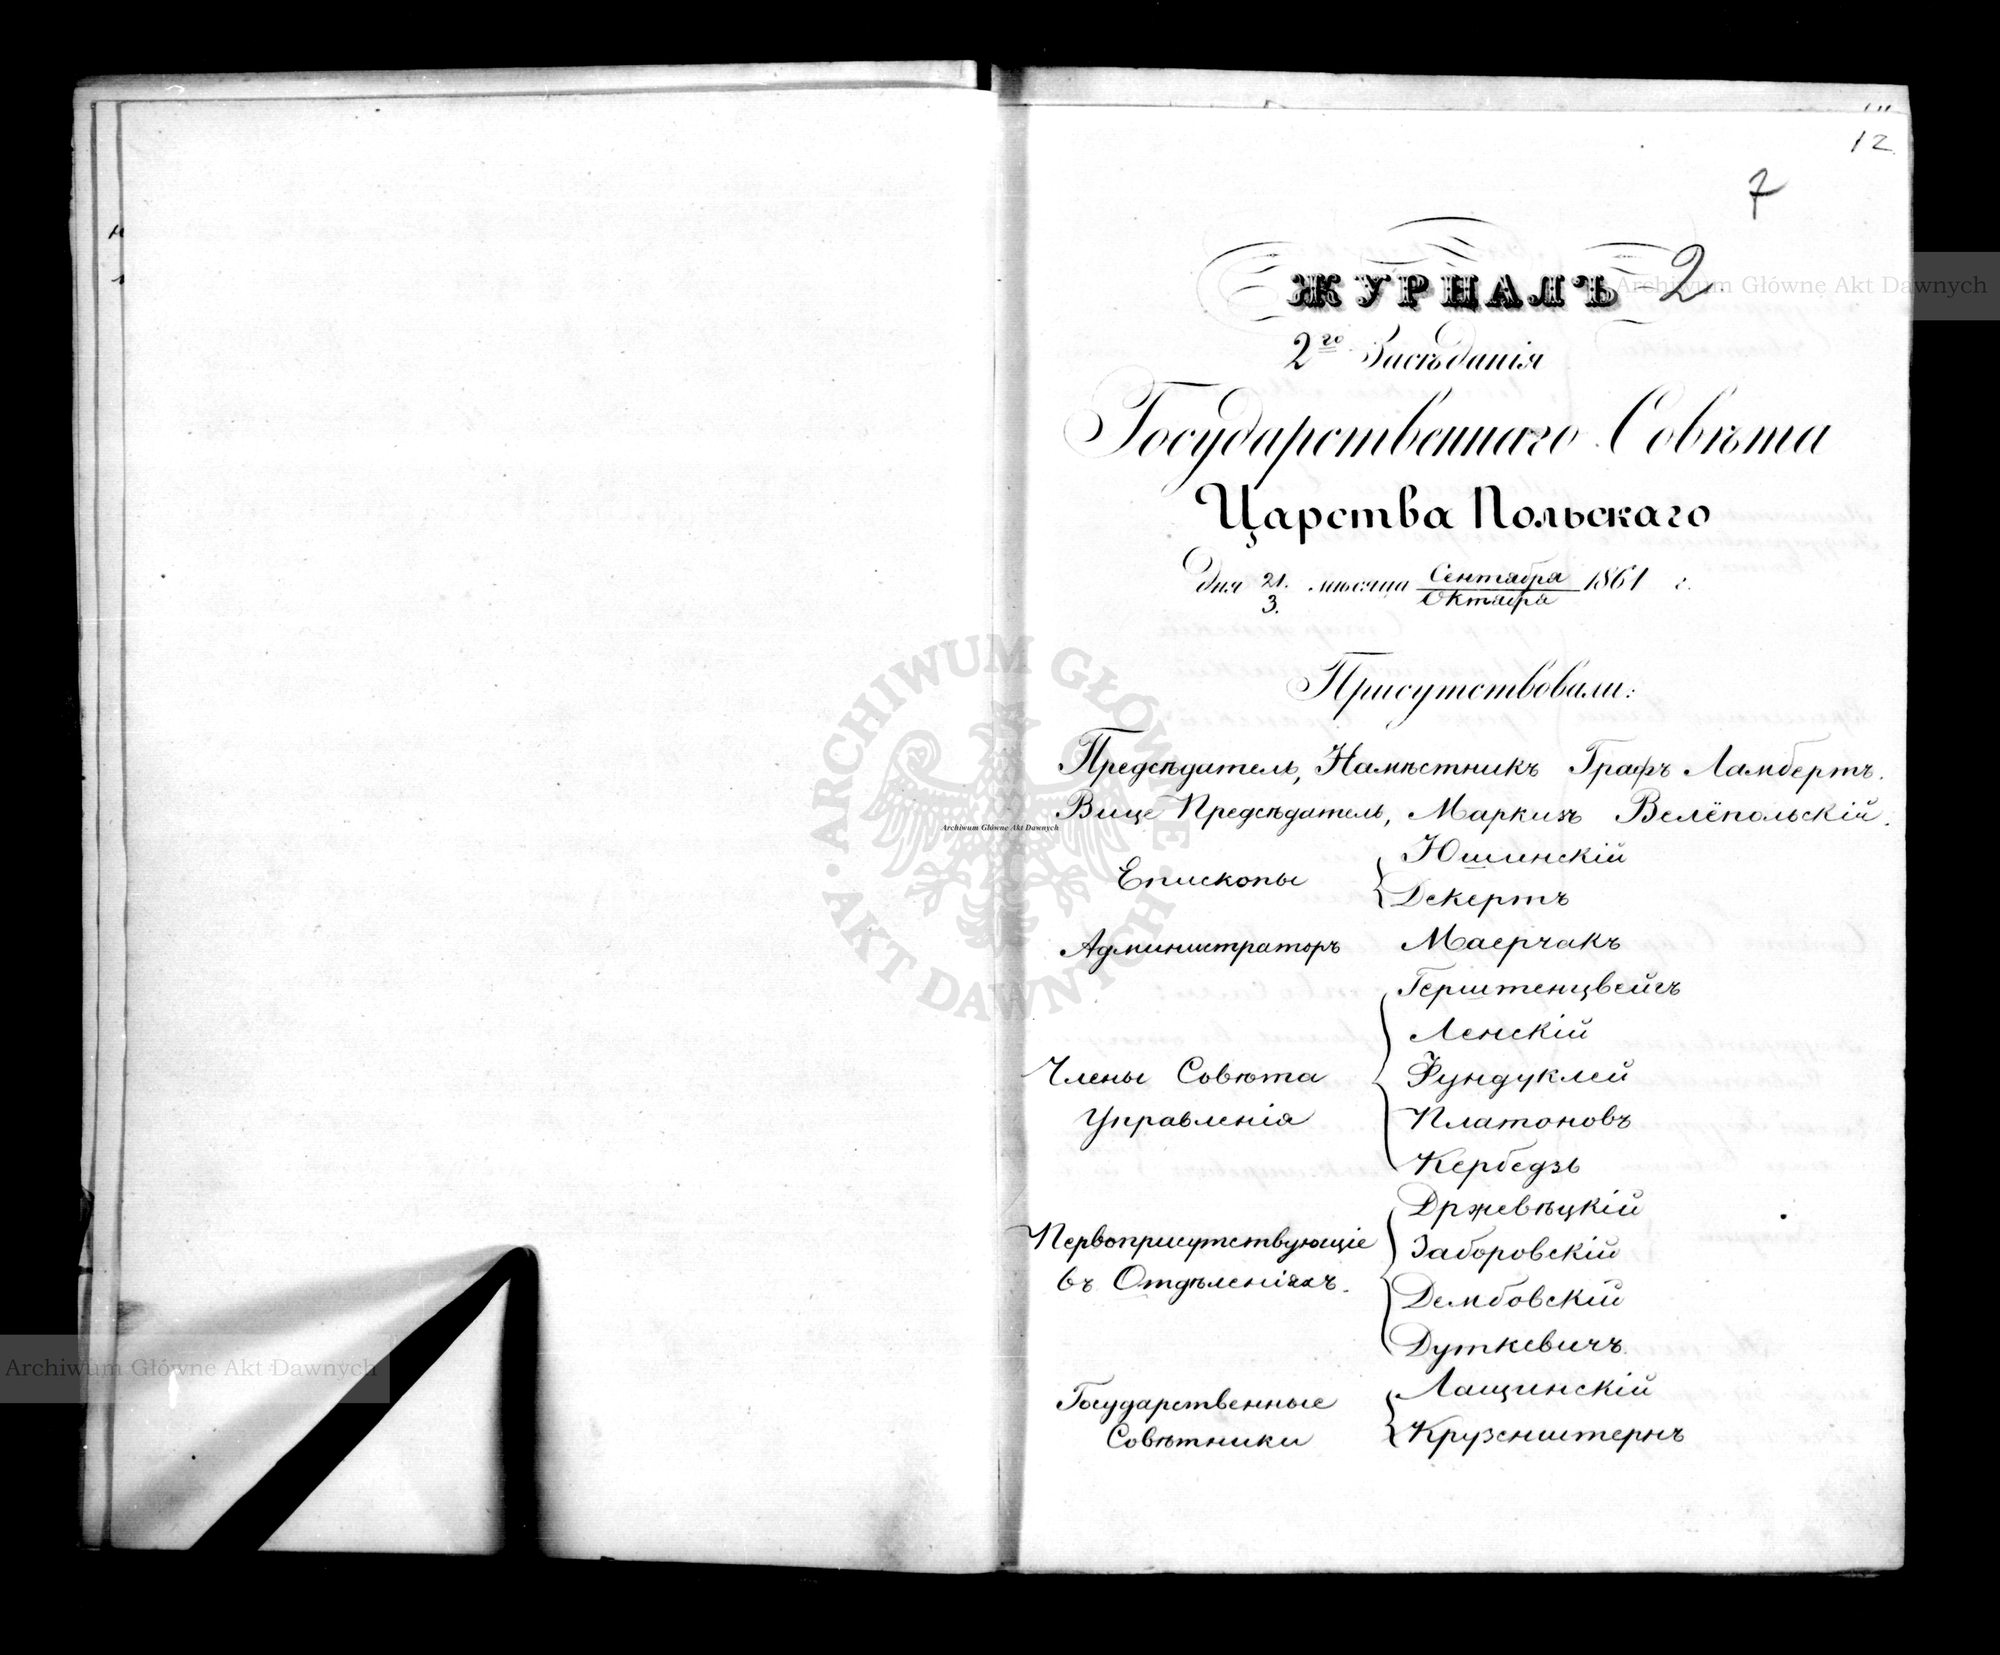 12
7
ЖУРНАЛЪ 2
2го Засѣданія
Государственнаго Совѣта
Царства Польскаго
дня 21./3. мѣсяца Сентября/Октября 1861 г.
Присутствовали:
Предсѣдатель, Намѣстникъ Графъ Ламбертъ.
Вице Предсѣдатель, Маркизъ Велёпольскій.
Епископы { Юшинскій
Декертъ
Администраторъ Маерчакъ
Члены Совѣта Управленія { Герштенцвейгъ
Ленскій
Фундуклей
Платоновъ
Кербедзь
Первоприсутствующіе въ Отдѣленіяхъ. { Држевѣцкій
Заборовскій
Дембовскій
Дуткевичъ.
Государственные Совѣтники { Лащинскій
Крузенштернъ
Archiwum Główne Akt Dawnych
ARCHIWUM GŁÓWNE AKT DAWNYCH
Archiwum Główne Akt Dawnych
Archiwum Główne Akt Dawnych